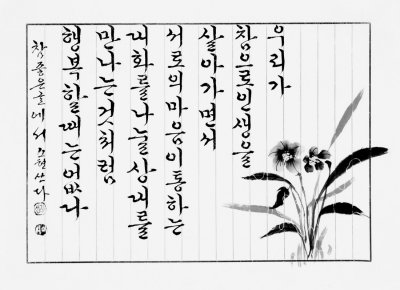 우리가
참으로 인생을
살아가면서
서로의 마음이 통하는
대화를 나눌 상대를
만나는 것처럼
행복할 때는 없다
참 좋은 글에서